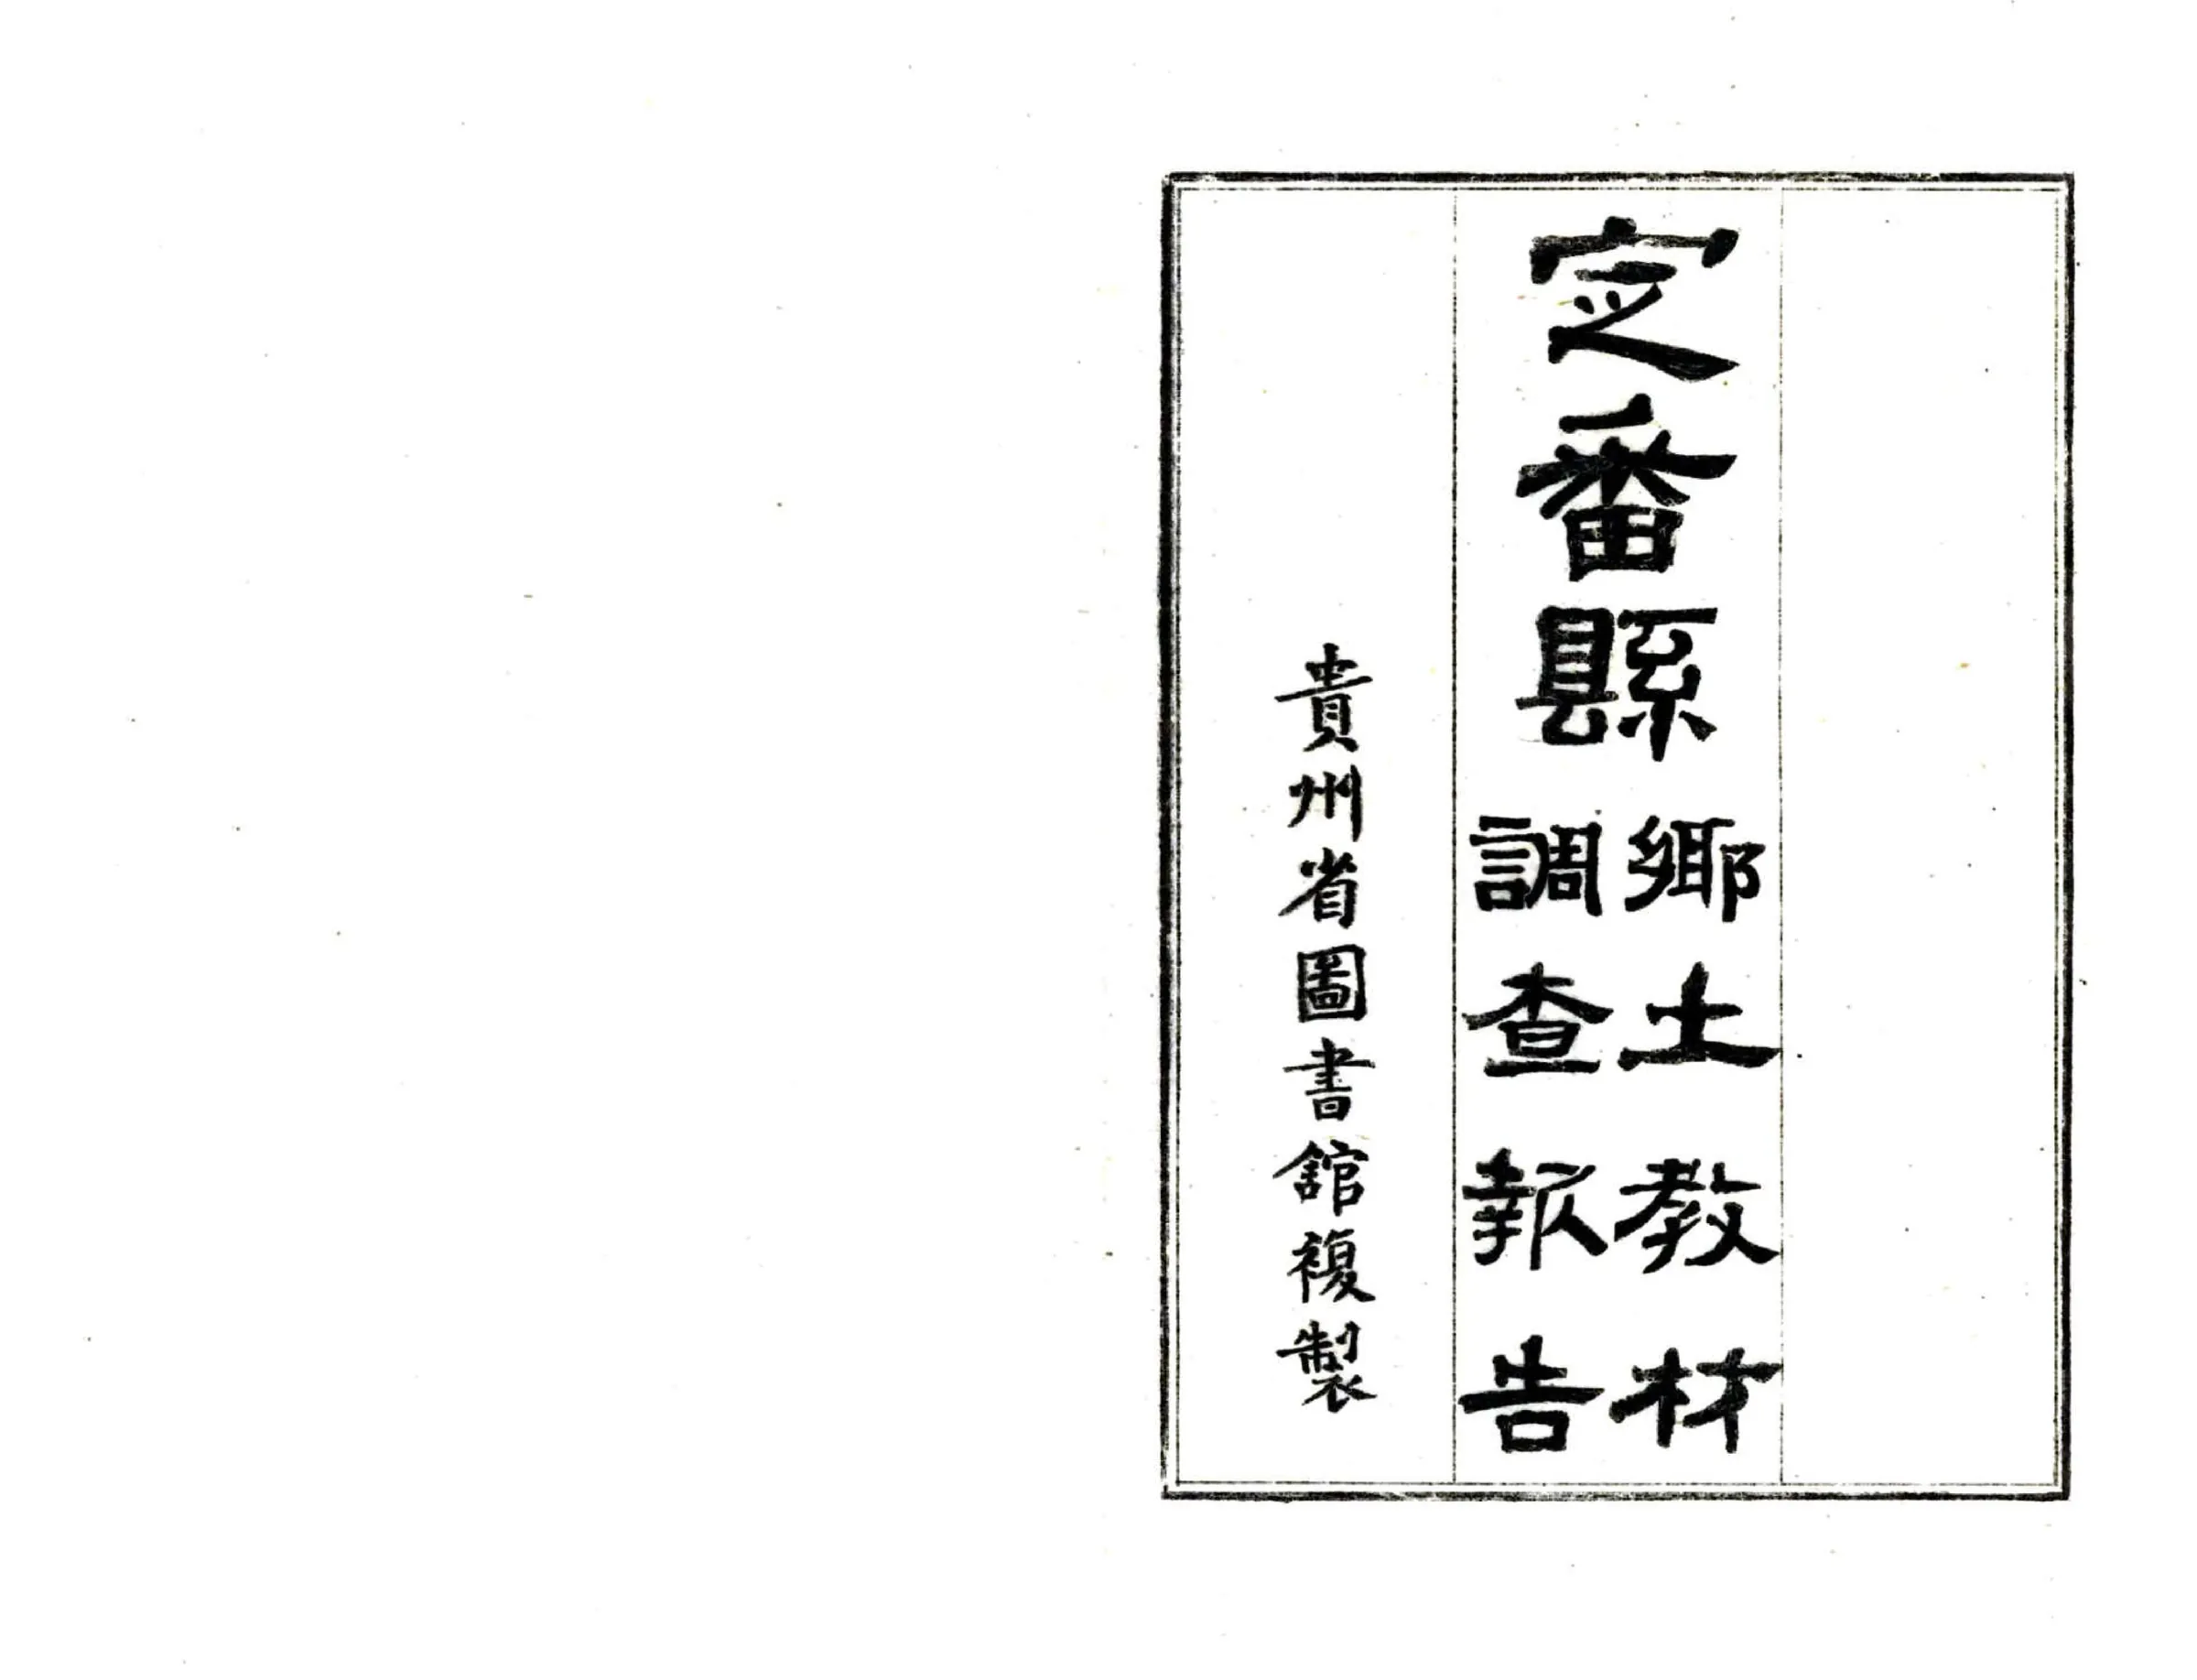 定番縣
鄉土教材
調查報告
貴州省圖書館複製